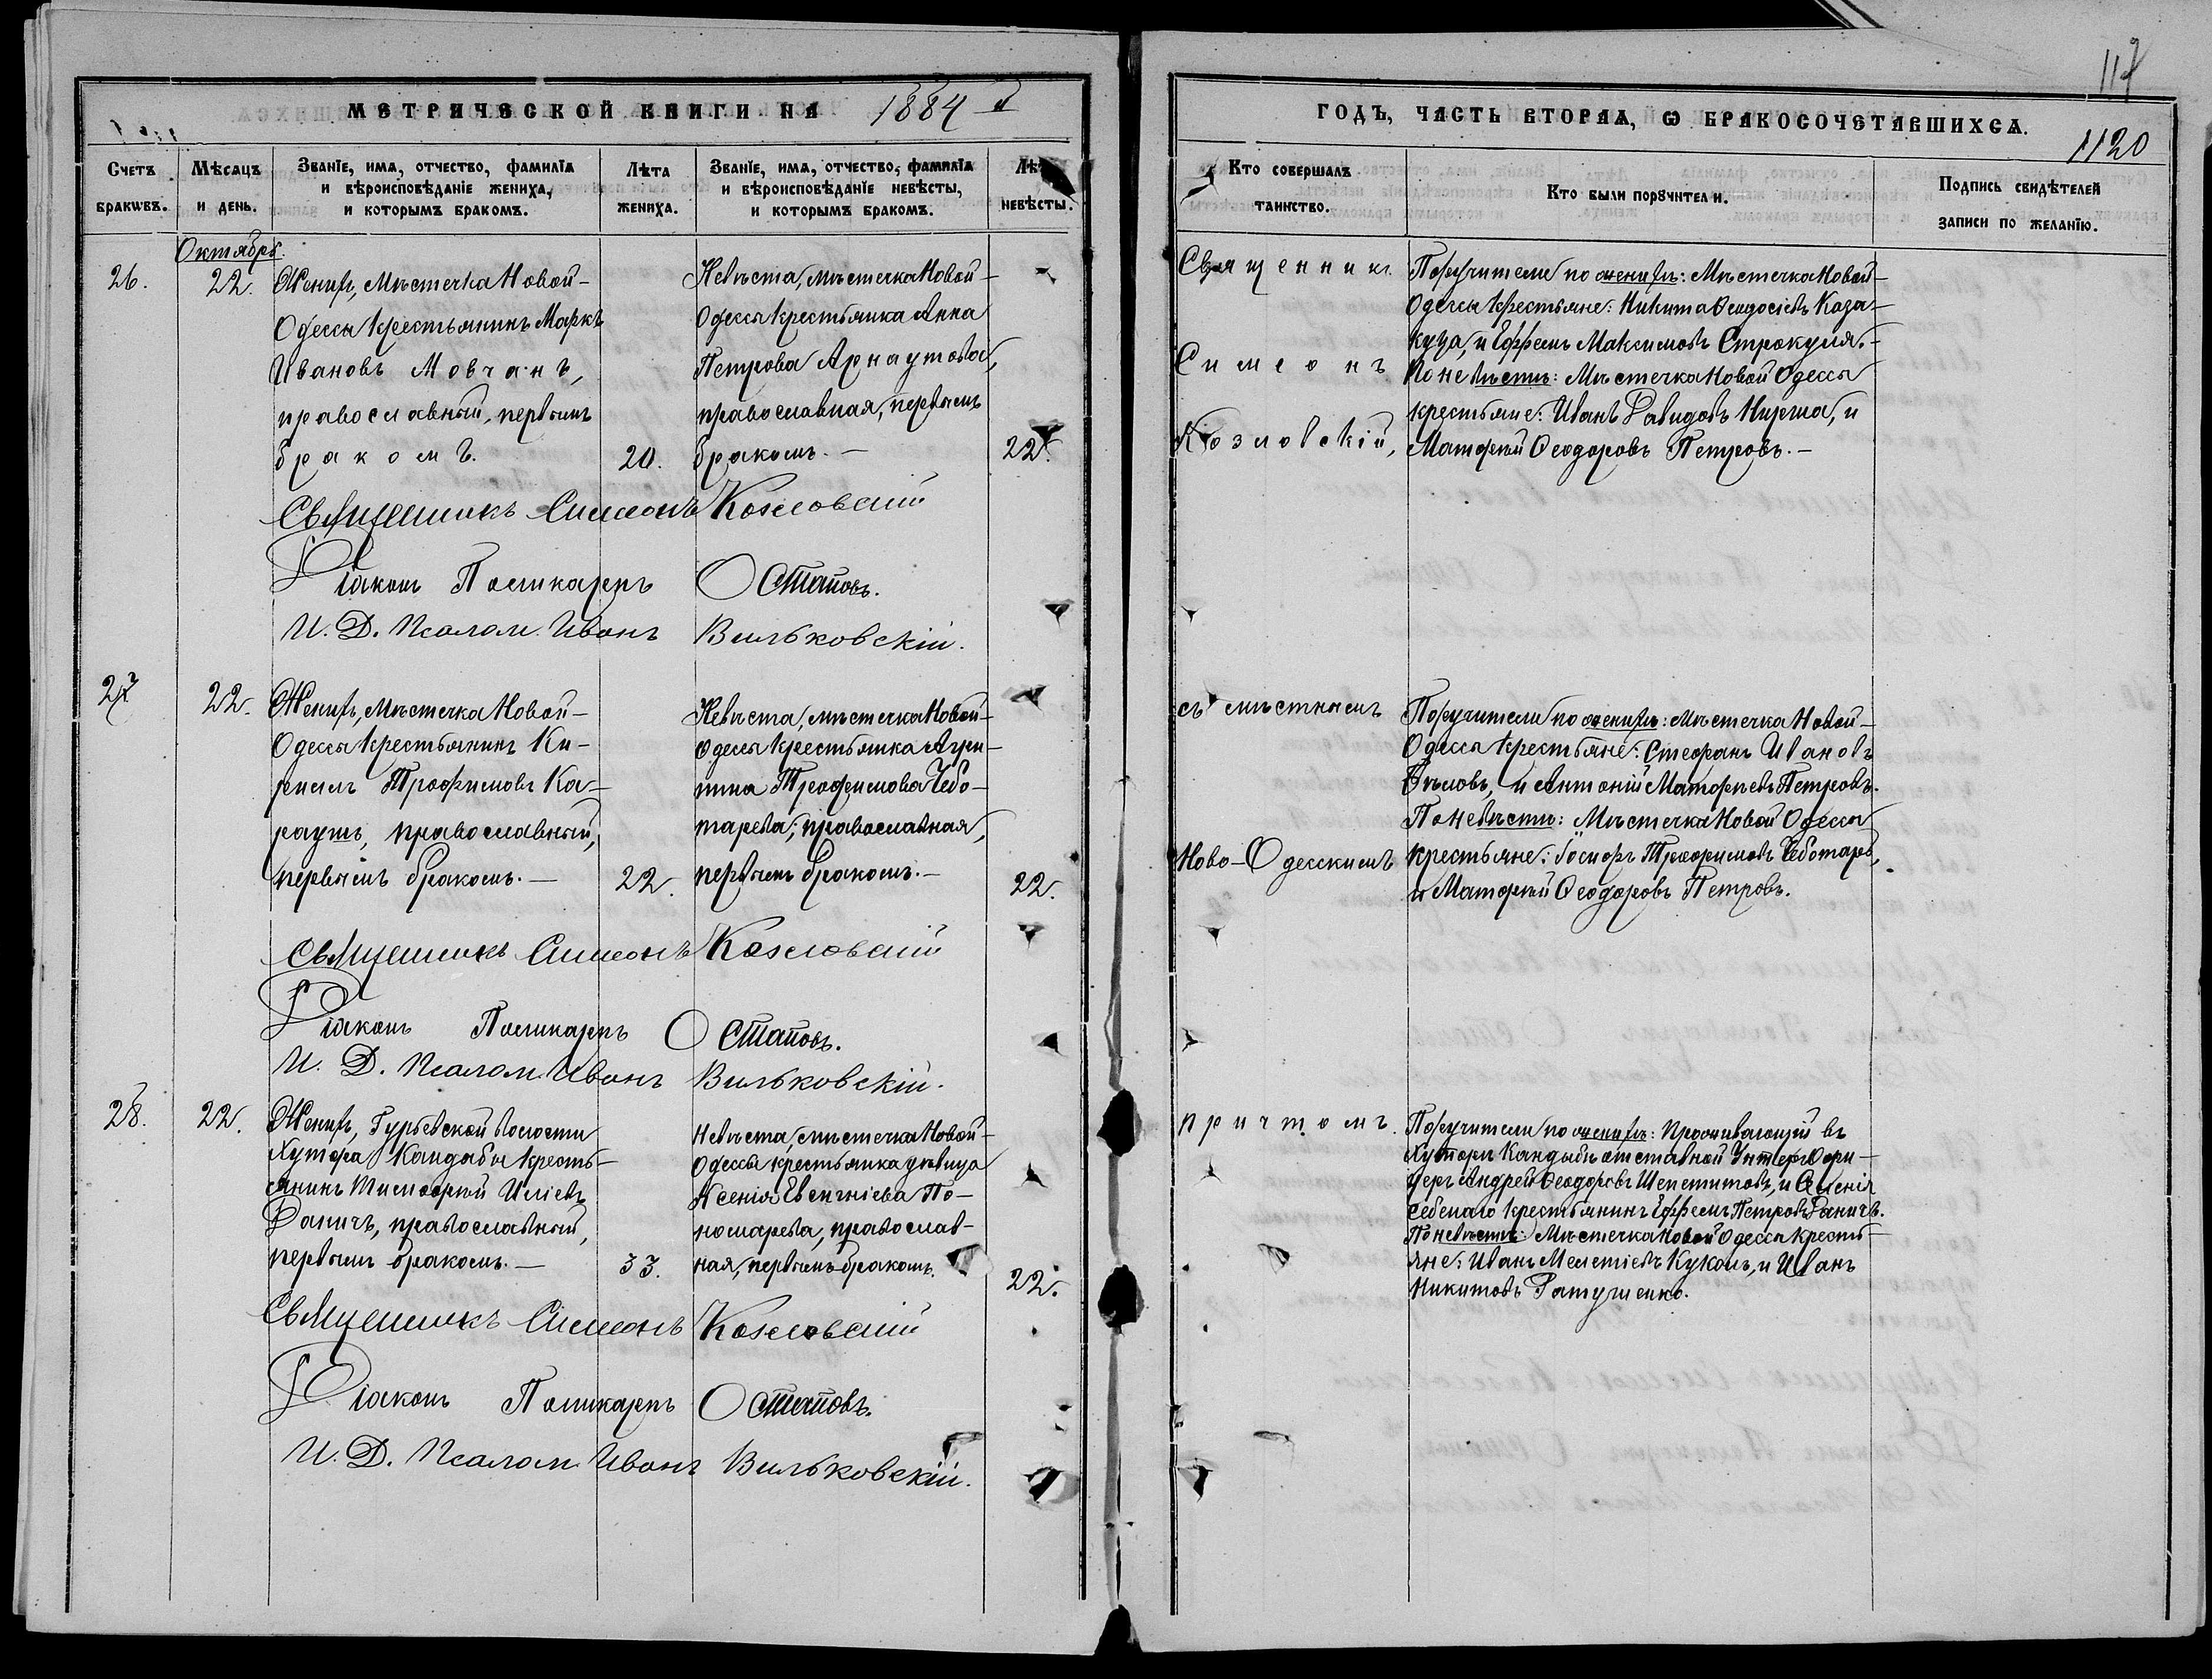 МЕТРИЧЕСКОЙ КНИГИ НА 1884 й
Счетъ браковъ.
Мѣсяцъ и день.
Званїе, имя, отчество, фамилїя
и вѣроисповѣданїе жениха,
и которымъ бракомъ.
Лѣта
жениха.
Званїе, имя, отчество, фамилїя
и вѣроисповѣданїе невѣсты,
и которымъ бракомъ.
Лѣта
невѣсты.
Октябрь.
26.
22.
Женихъ, Мѣстечка Новой-
Одессы крестьянинъ Маркъ
Ивановъ Мовчанъ,
православный, первымъ
бракомъ.
20.
Невѣста, мѣстечка Новой-
Одессы крестьянка Анна
Петрова Арнаутова,
православная, первымъ
бракомъ. —
22.
Священникъ Симеонъ Козловскій
Діаконъ Поликарпъ Остаповъ.
И. Д. Псалом. Иванъ Вильковскій.
27
22.
Женихъ, Мѣстечка Новой-
Одессы крестьянинъ Ки-
риллъ Трофимовъ Ка-
раутъ, православный,
первымъ бракомъ. —
22.
Невѣста, мѣстечка Новой-
Одессы крестьянка Агри-
пина Трофимова Чебо-
тарева, православная,
первымъ бракомъ. —
22.
Священникъ Симеонъ Козловскій
Діаконъ Поликарпъ Остаповъ.
И. Д. Псалом. Иванъ Вильковскій.
28.
22.
Женихъ, Гурьевской волости
Хутора Кандыбы кресть-
янинъ Тимофей Иліевъ
Даничъ, православный,
первымъ бракомъ. —
33.
Невѣста, мѣстечка Новой-
Одессы крестьянка дѣвица
Ксенія Евсигніева По-
номарева, православ-
ная, первымъ бракомъ.
22.
Священникъ Симеонъ Козловскій
Діаконъ Поликарпъ Остаповъ.
И. Д. Псалом. Иванъ Вильковскій.
117
ГОДЪ, ЧАСТЬ ВТОРАЯ, Ѡ БРАКОСОЧЕТАВШИХСЯ.
1120
Кто совершалъ
таинство.
Кто были порꙋчители.
Подпись свидѣтелей
записи по желанїю.
Священникъ
Симеонъ
Козловскій,
Поручители по женихѣ: Мѣстечка Новой-
Одессы крестьяне: Никита Ѳеодосіевъ Каза-
куца, и Ефремъ Максимовъ Строкуля. -
По невѣстѣ: Мѣстечка Новой Одессы
крестьяне: Иванъ Давидовъ Ниргиа, и
Матѳей Ѳеодоровъ Петровъ. —
съ мѣстнымъ
Ново-Одесскимъ
Поручители по женихѣ: Мѣстечка Новой-
Одессы крестьяне: Стефанъ Ивановъ
Бѣловъ, и Антоній Матѳіевъ Петровъ.
По невѣстѣ: Мѣстечка Новой Одессы
крестьяне: Іосифъ Трофимовъ Чеботарь,
и Матѳей Ѳеодоровъ Петровъ.
причтомъ.
Поручители по женихѣ: Проживающій въ
Хуторѣ Кандыбѣ отставной Унтеръ Офи-
церъ Андрей Ѳеодоровъ Шепетитовъ, и
крестьянинъ Ефремъ Петровъ Даничъ.
По невѣстѣ: Мѣстечка Новой Одессы кресть-
яне: Иванъ Мелетіевъ Куколъ, и Иванъ
Никитовъ Ратушенко.